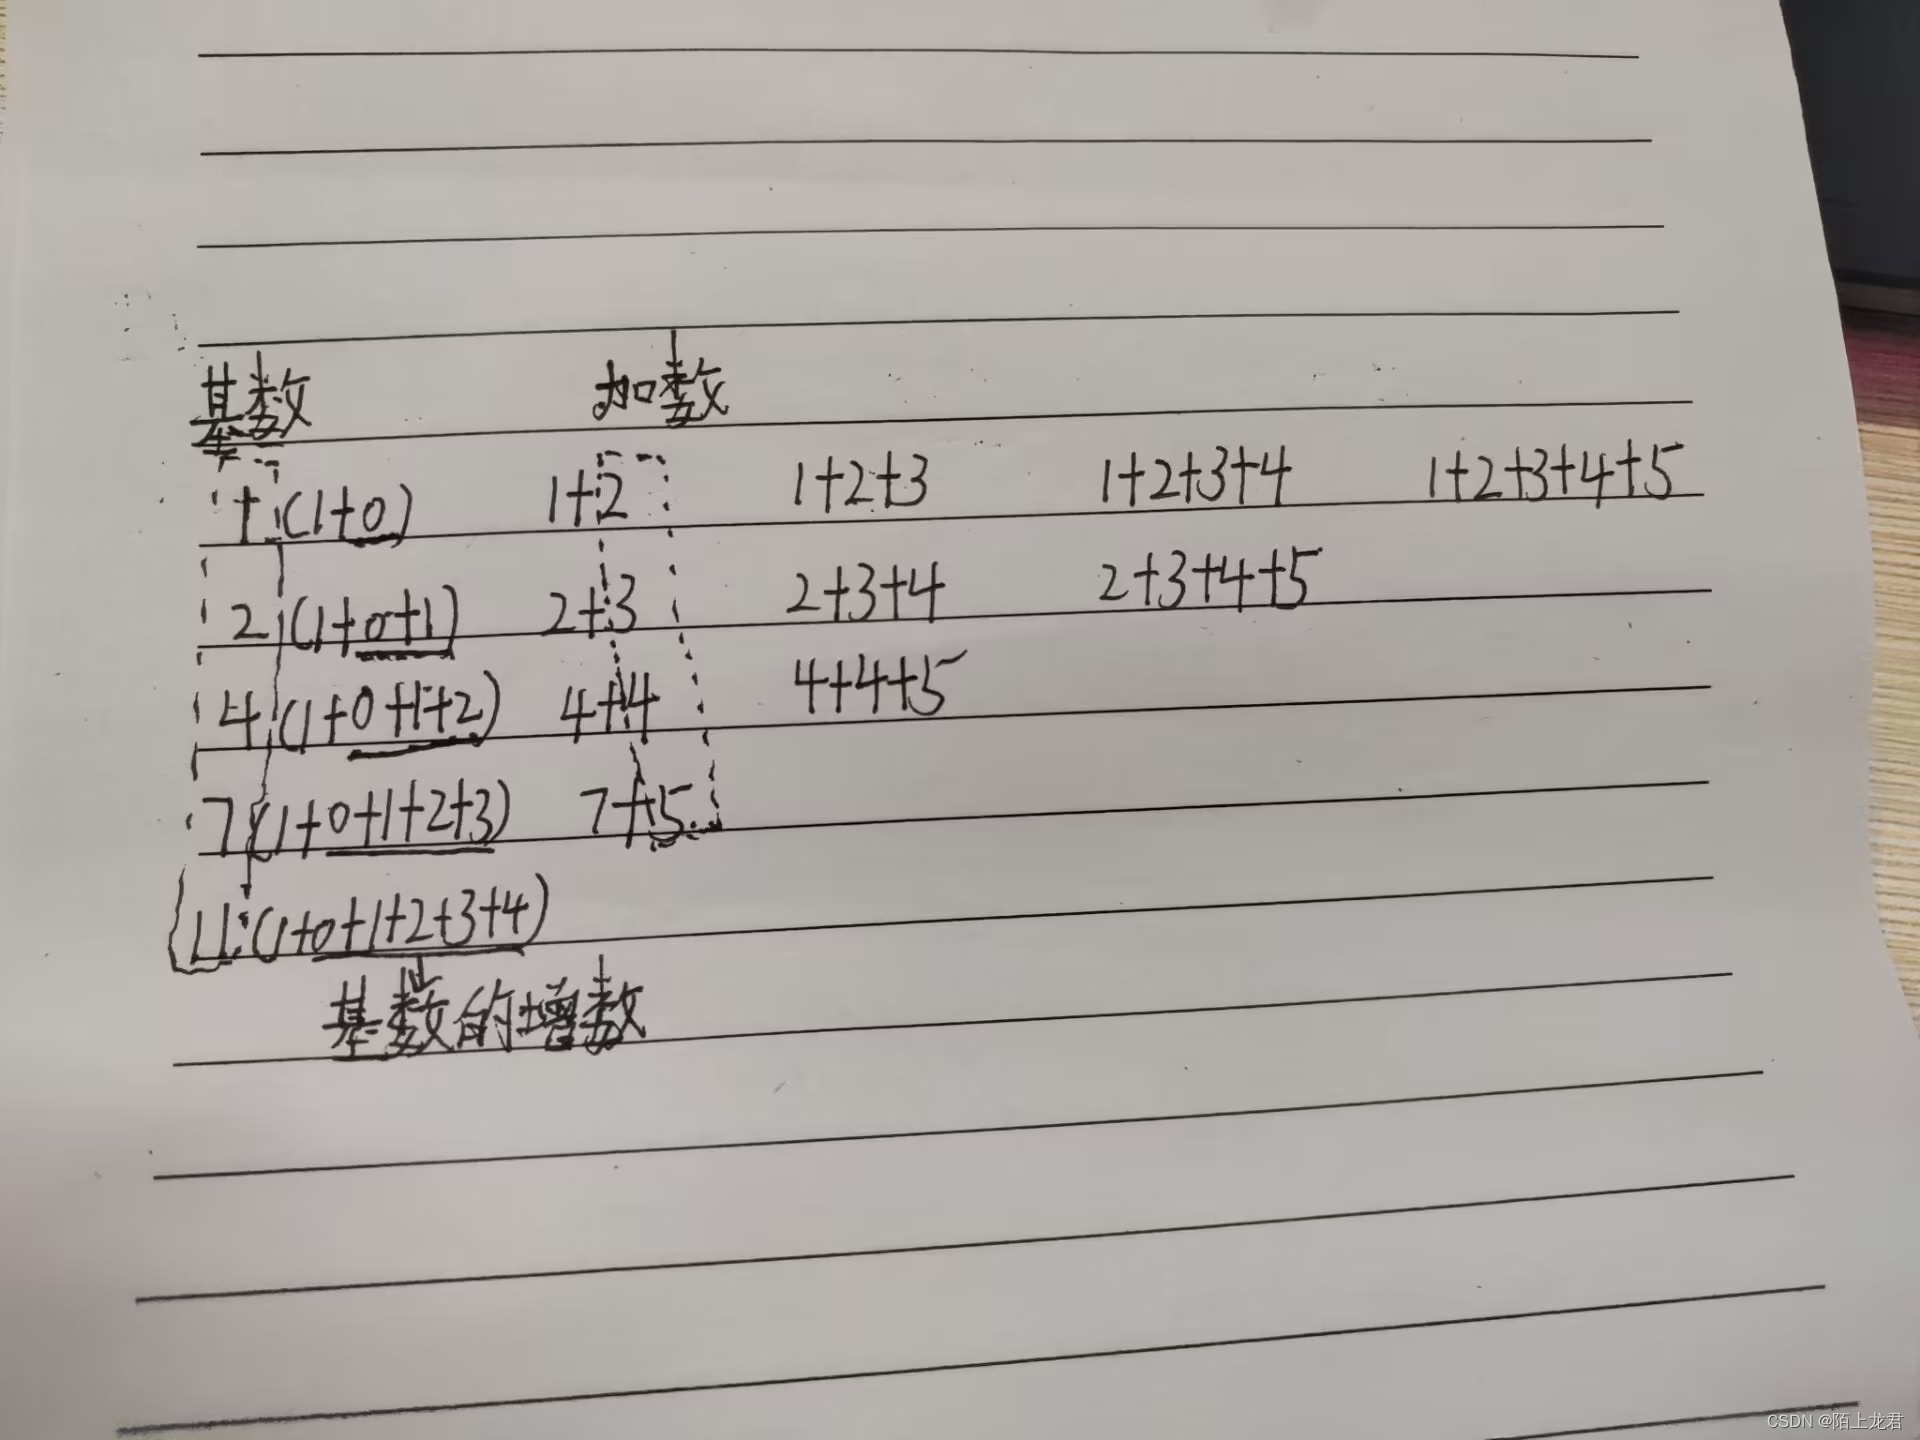 基数 加数
1 (1+0) 1+2 1+2+3 1+2+3+4 1+2+3+4+5
2 (1+0+1) 2+3 2+3+4 2+3+4+5
4 (1+0+1+2) 4+4 4+4+5
7 (1+0+1+2+3) 7+5
11 (1+0+1+2+3+4)
基数的增数
CSDN @陌上龙君